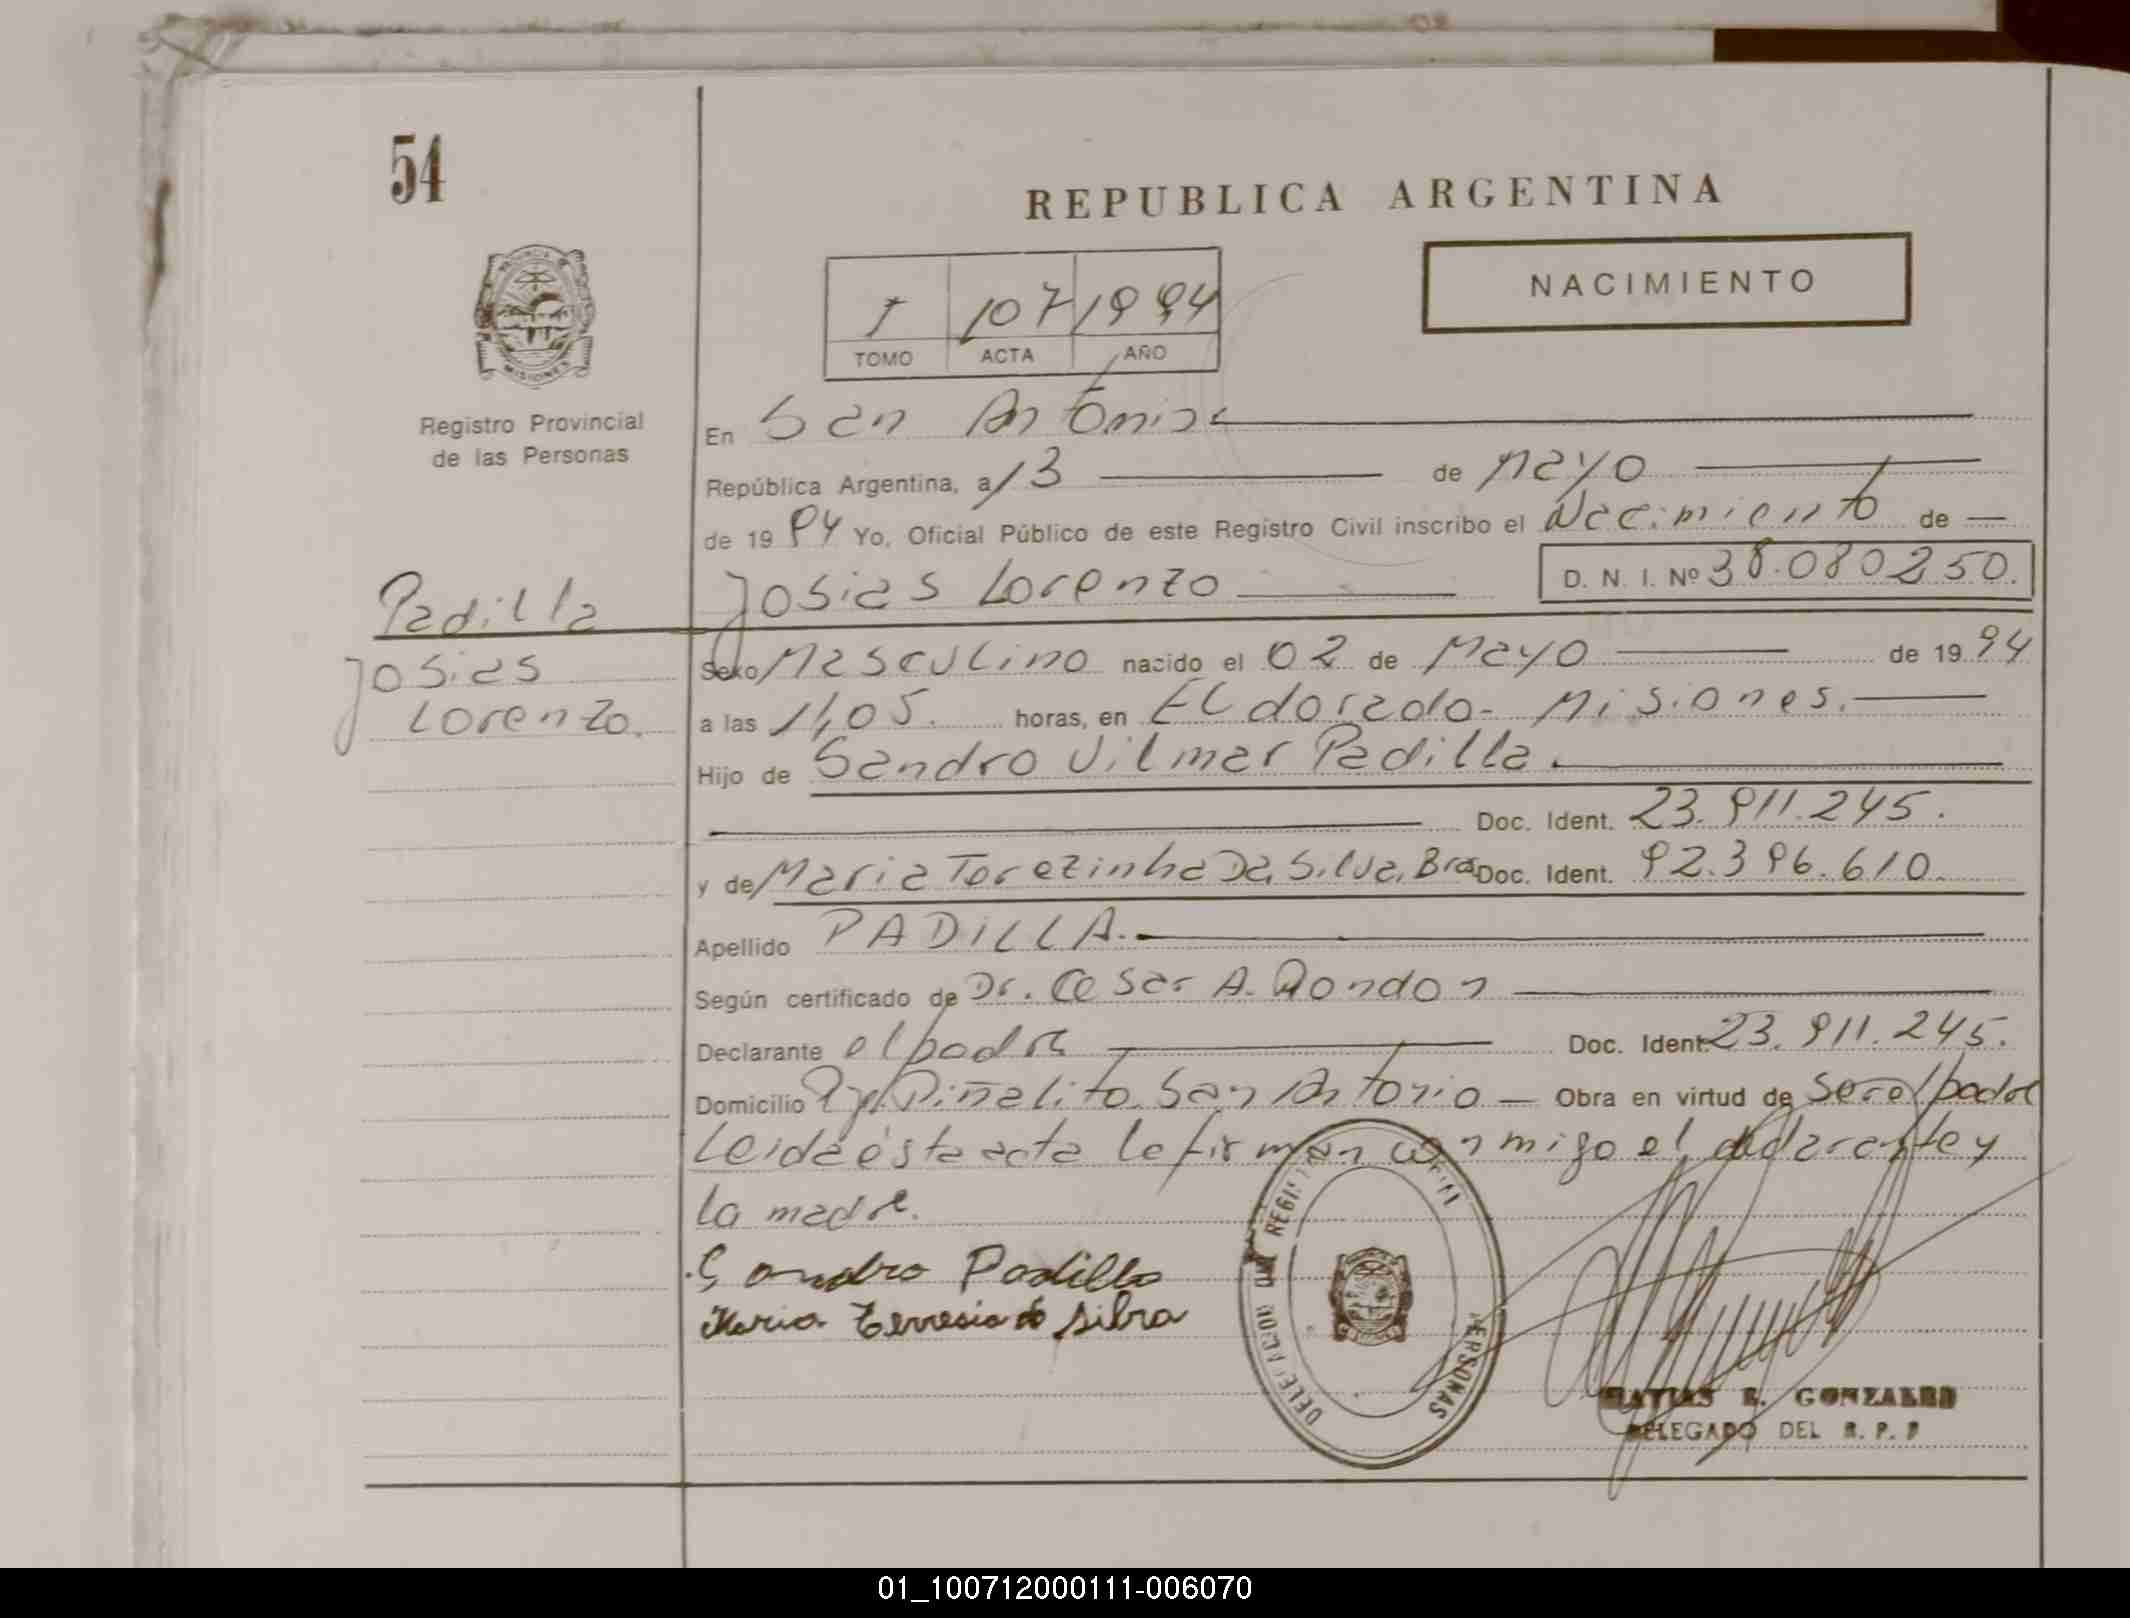 54
REPUBLICA ARGENTINA
NACIMIENTO
PROVINCIA DE
MISIONES
Registro Provincial
de las Personas
1 107 1994
TOMO ACTA AÑO
En San Antonio
República Argentina, a 13 de Mayo
de 1994 Yo, Oficial Público de este Registro Civil inscribo el Nacimiento de
Josias Lorenzo D. N. I. Nº 38.080250.
Padilla
Josias
Lorenzo.
Sexo Masculino nacido el 02 de Mayo de 1994
a las 11,05. horas, en ELdorado- Misiones.
Hijo de Sandro Vilmar Padilla.
Doc. Ident. 23.911.245.
y de Maria Terezinha Da Silva, Bras Doc. Ident. 92.396.610.
Apellido PADiLLA.
Según certificado de Dr. Cesar A. Rondon
Declarante el padre Doc. Ident. 23.911.245.
Domicilio Piñalito San Antonio Obra en virtud de Ser el padre
Leida ésta acta la firman conmigo el declarante y
la madre.
Sandro Padilla
Maria Terresia de Silva
DELEGACION REGIS PERSONAS
MATIAS R. GONZALEZ
DELEGADO DEL R. P. P
01_100712000111-006070